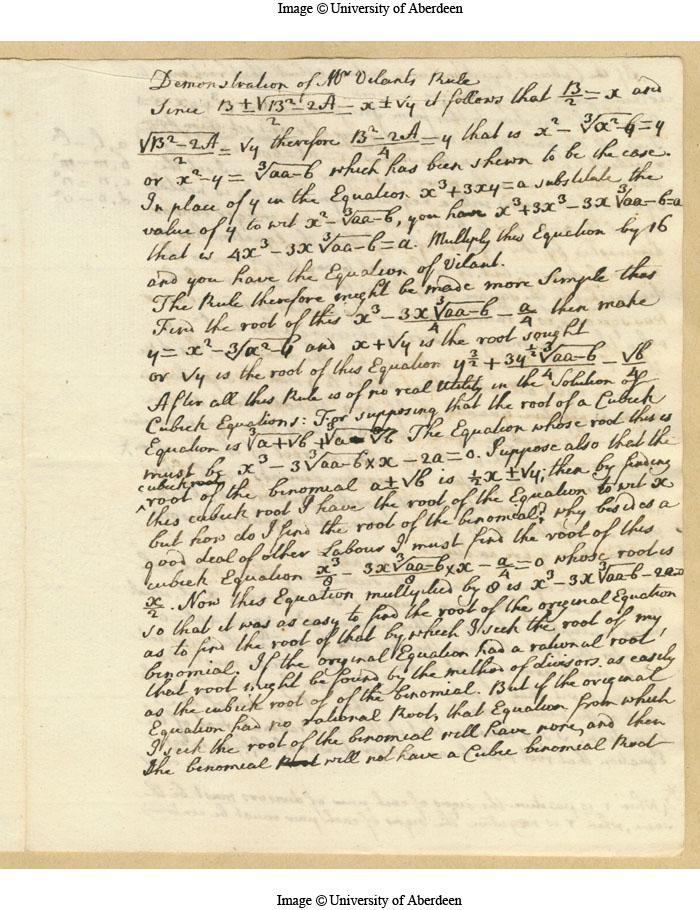 Image © University of Aberdeen
Demonstration of Mr Vilants Rule
Since B±√B²-2A/2 = x±√y it follows that B/2 = x and
√B²-2A/2 = √y therefore B²-2A/4 = y that is x² - ∛x²-b = y
or x²-y = ∛aa-b which has been shewn to be the case.
In place of y in the Equation x³+3xy=a substitute the
value of y to wit x²-∛aa-b, you have x³+3x³-3x∛aa-b=a
that is 4x³-3x∛aa-b=a. Multiply this Equation by 16
and you have the Equation of Vilant.
The Rule therefore might be made more Simple thus
Find the root of this x³ - 3x∛aa-b/4 - a/4 then make
y = x²-∛a²-b and x+√y is the root sought
or √y is the root of this Equation y^3/2 + 3y^1/2∛aa-b/4 - √b/4
After all this Rule is of no real Utility in the Solution of
Cubick Equations: For supposing that the root of a Cubick
Equation is ∛a+√b + ∛a-√b The Equation whose root this is
must be x³ - 3∛aa-b×x - 2a=0. Suppose also that the
cubick
^root of the binomial a±√b is ½x±√y; then by finding
this cubick root I have the root of the Equation to wit x
but how do I find the root of the binomial? why besides a
good deal of other Labour I must find the root of this
cubick Equation x³/8 - 3x∛aa-b/8×x - a/4=0 whose root is
x/2. Now this Equation multiplied by 8 is x³-3x∛aa-b-2a=0
So that it was as easy to find the root of the original Equation
as to find the root of that by which I seek the root of my
binomial. If the original Equation had a rational root,
that root might be found by the method of divisors. as easily
as the cubick root of of the binomial. But if the original
Equation had no rational Root, that Equation from which
I seek the root of the binomial will have none, and then
the binomial will not have a Cubic binomial Root
Image © University of Aberdeen